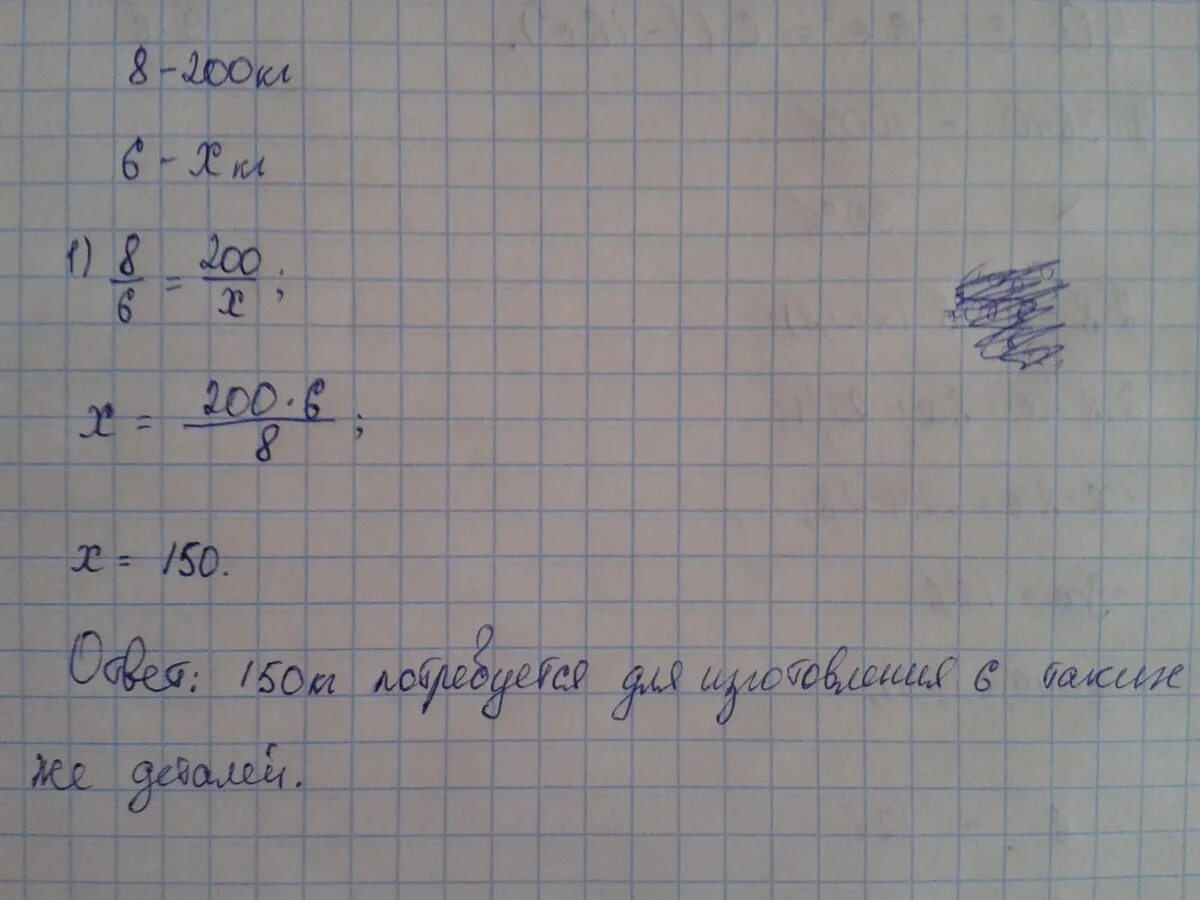 8 - 200кг
6 - х кг
1) 8/6 = 200/х ;
х = 200·6/8 ;
х = 150.
Ответ: 150кг потребуется для изготовления 6 таких
же деталей.